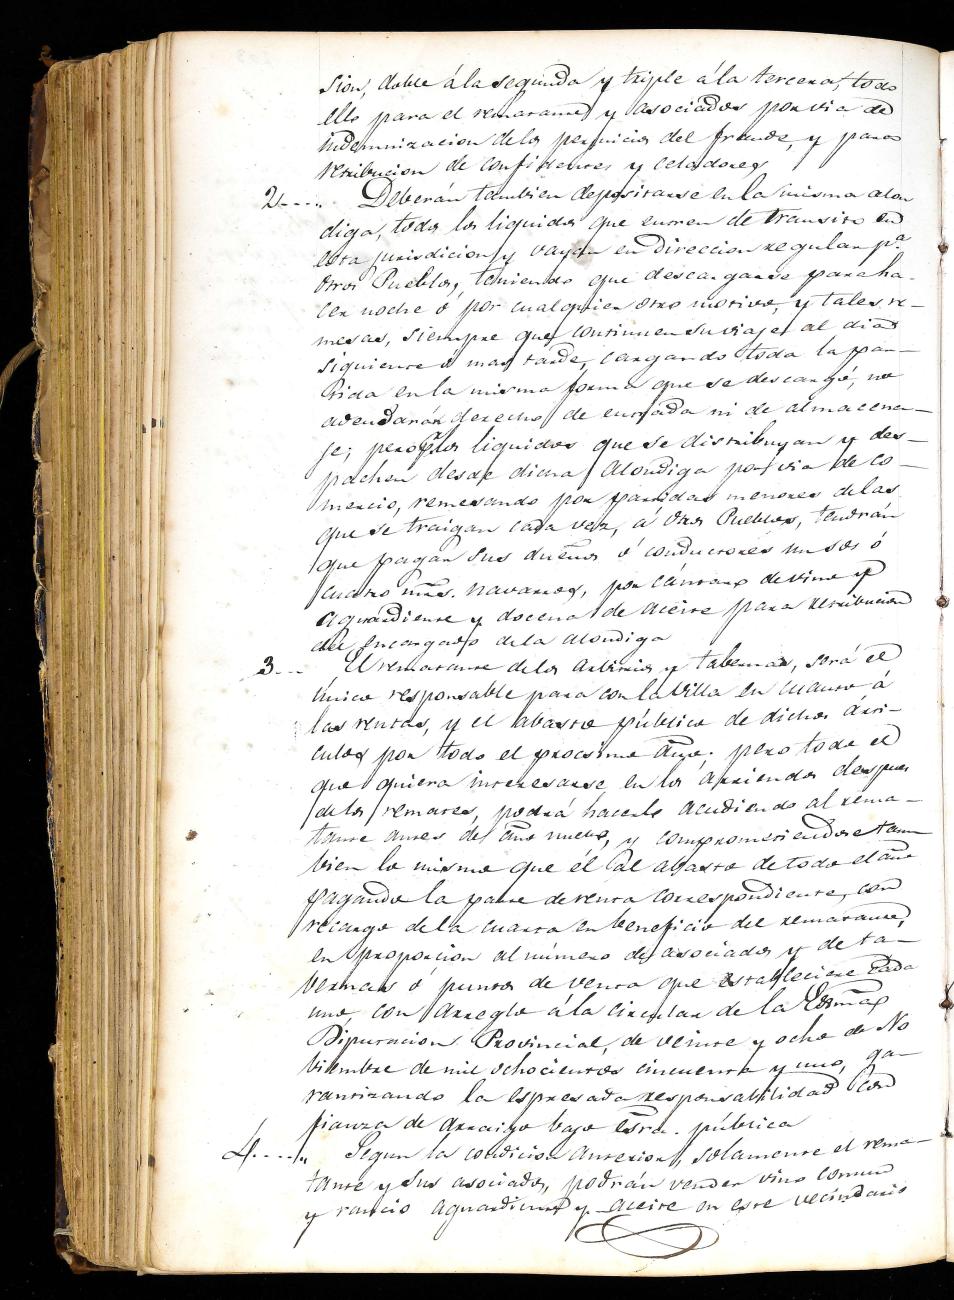 sion, doble á la segunda y triple á la tercera, todo
ello para el rematante y asociados por via de
indemnizacion de los perjuicios del fraude, y para
retribucion de confidentes y celadores
2.... Deberán tambien depositarse en la misma alon
diga, todos los liquidos que entren de transito en
esta jurisdicion y vayan en direccion regular pª
otros Pueblos, teniendo que descargarse para ha-
cer noche ó por cualquier otro motivo, y tales re-
mesas, siempre que continuen su viaje al dia
siguiente ó mas tarde, cargando toda la par-
tida en la misma forma que se descargó, no
adeudarán derechos de entrada ni de almacena-
je; pero los liquidos que se distribuyan y des-
pachen desde dicha Alondiga por via de co-
mercio, remesando por partidas menores de las
que se traigan cada vez, á otros Pueblos, tendrán
que pagar sus dueños ó conductores un sos ó
cuatro mrs. navarros, por cántaro de vino y
Aguardiente y docena de aceite para retribucion
del Encargado de la alondiga
3... El rematante de los arbitrios y tabernas, será el
único responsable para con la Villa en cuanto á
las rentas, y el abasto público de dichos árti-
culos por todo el procsimo año; pero todo el
que quiera interesarse en los Arriendos despues
de los remates, podrá hacerlo acudiendo al rema-
tante antes del año nuevo, y comprometiendose tam
bien lo mismo que él al abasto de todo el año
pagando la parte de renta correspondiente, con
recargo de la cuarta en beneficio del rematante,
en proporcion al número de asociados y de ta-
vernas ó puntos de venta que estableciere cada
uno, con arreglo á la circular de la Ecsma
Diputacion Provincial, de veinte y ocho de No
biembre de mil ochocientos cincuenta y uno, ga-
rantizando la espresada responsabilidad con
fianza de arraigo bajo Esra. pública
4....." Segun la condicion anterior, solamente el rema-
tante y sus asociados, podrán vender vino comun
y rancio aguardiente y aceite en este vecindario